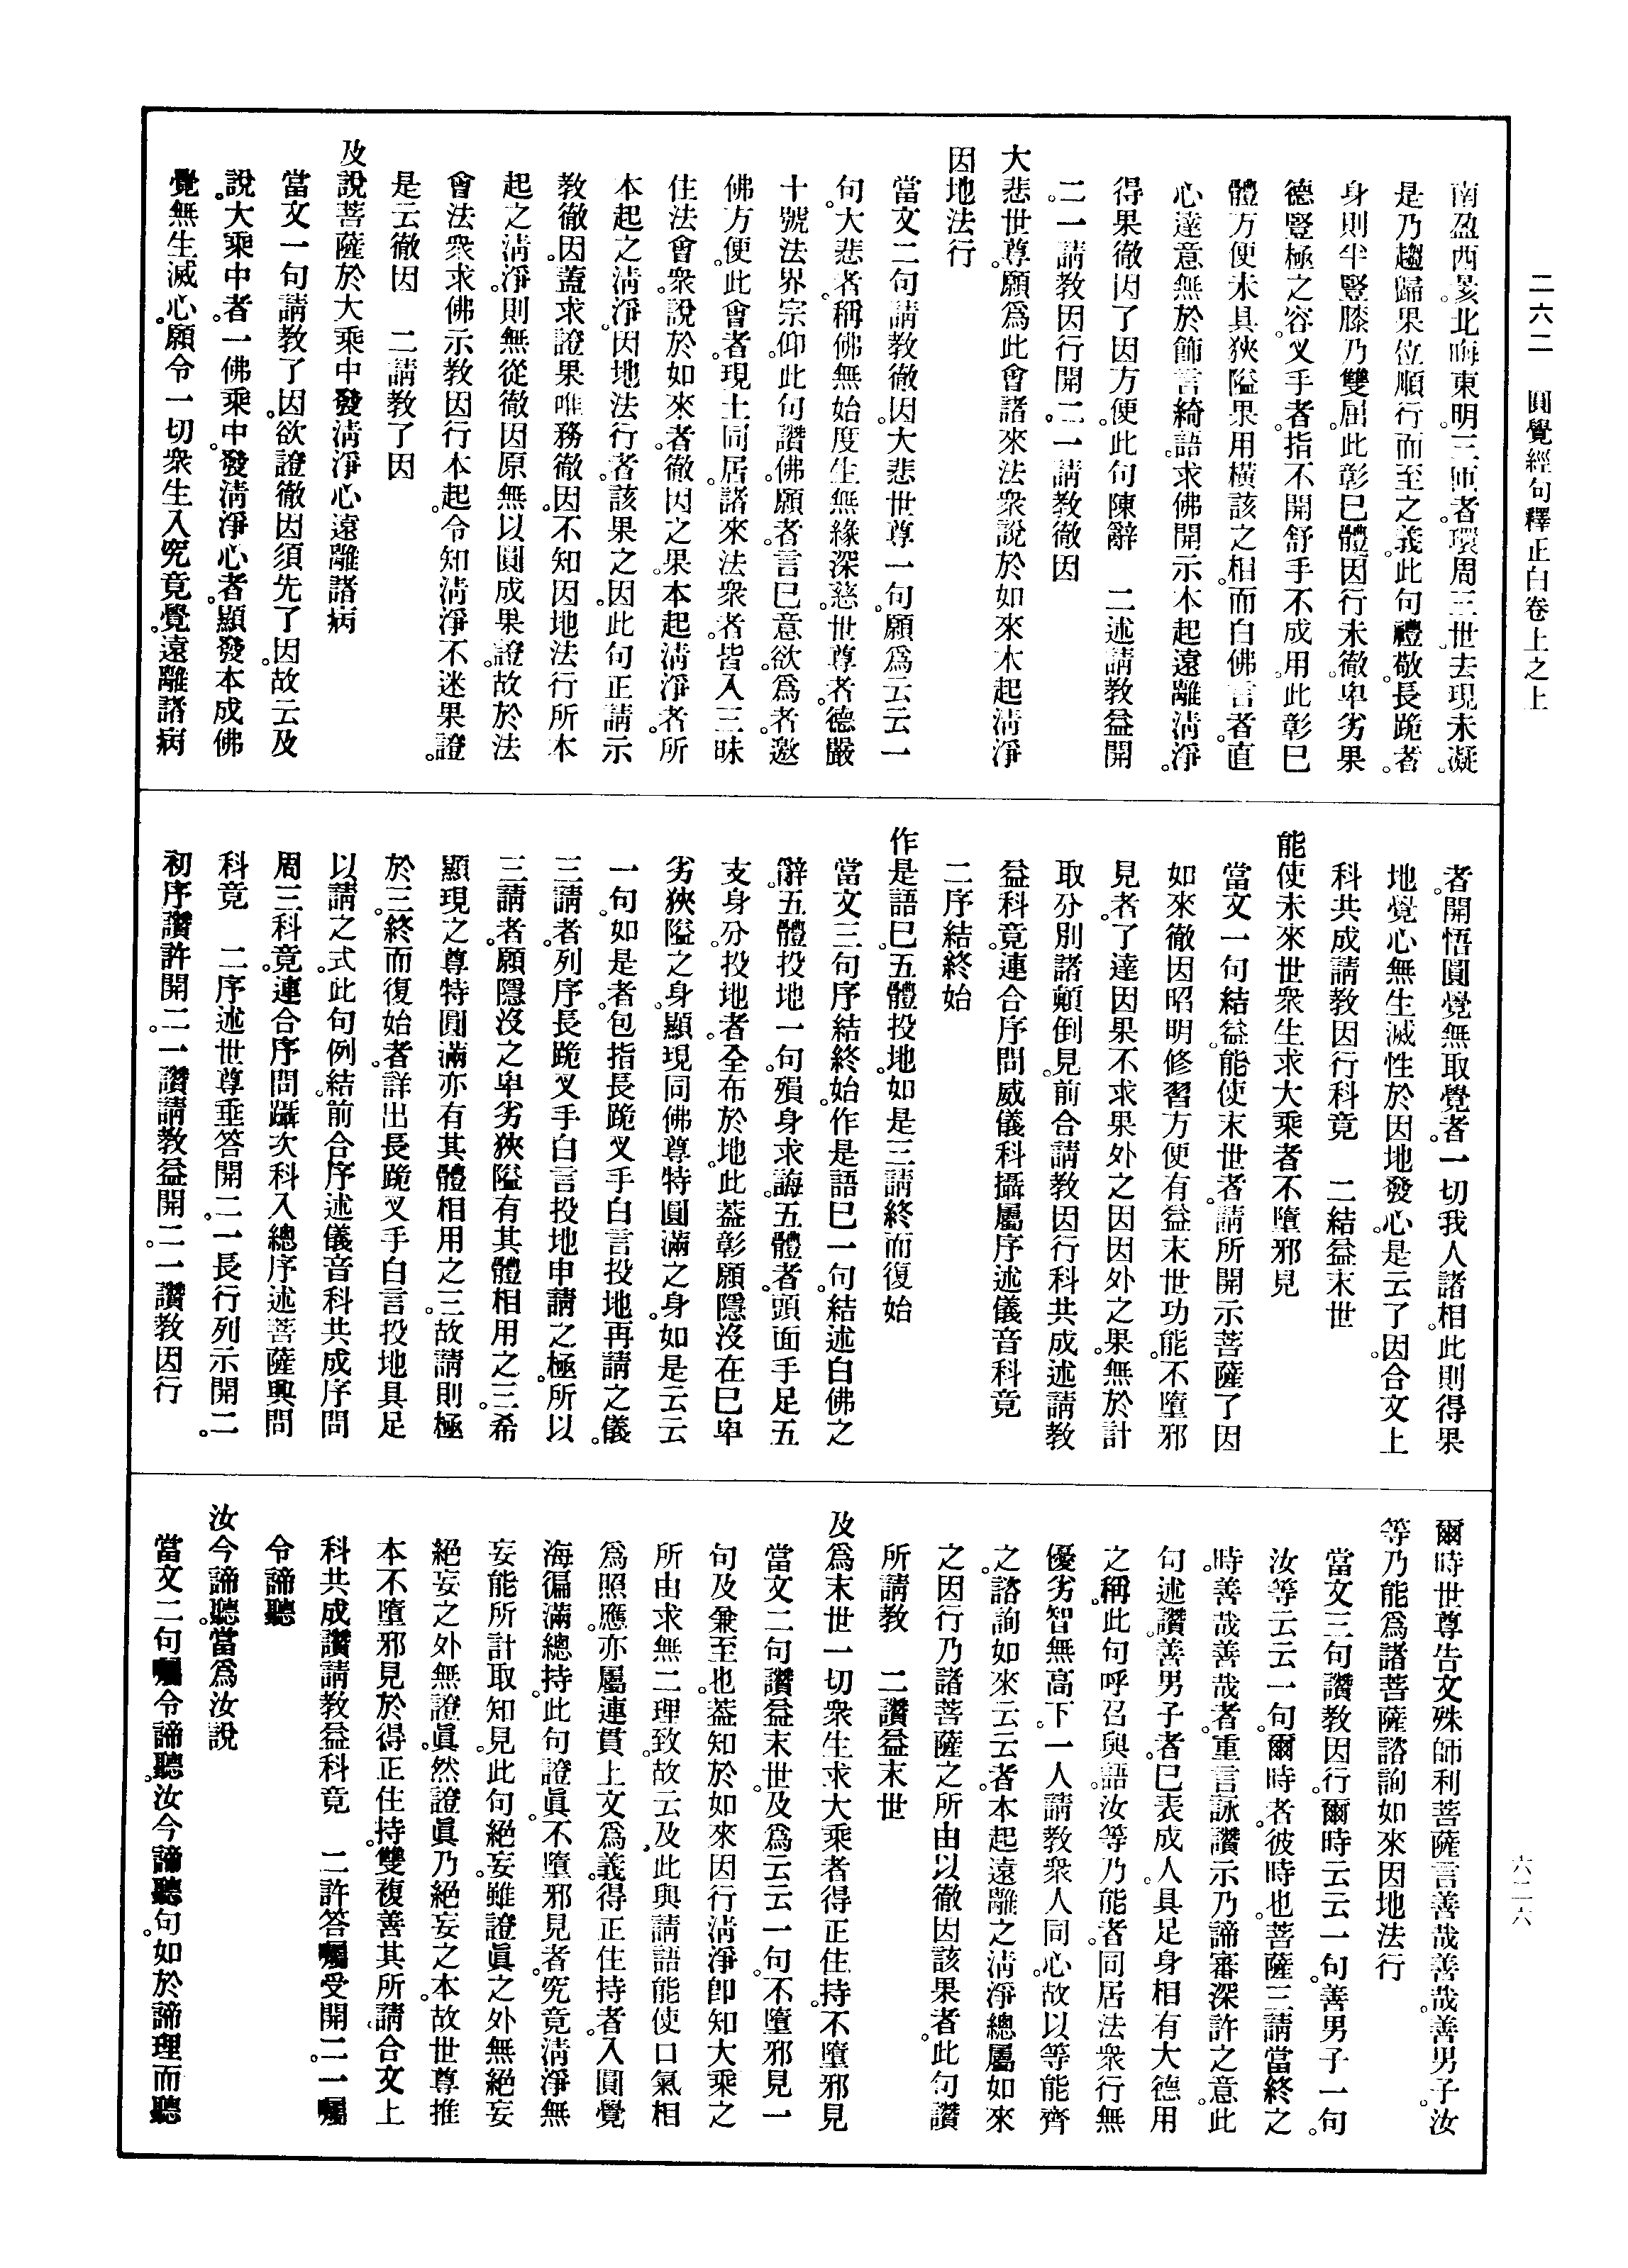 二六二　圓覺經句釋正白卷上之上
南盈西昃。北晦東明。三帀者。環周三世。去現未凝。
是乃趨歸果位順行而至之義。此句禮敬。長跪者。
身則半豎膝乃雙屈。此彰巳體因行未徹卑劣果
德豎極之容。叉手者。指不開舒手不成用。此彰巳
體方便未具狹隘果用橫該之相。而白佛言者。直
心達意無於飾言綺語。求佛開示本起遠離清淨。
得果徹因了因方便。此句陳辭　二述請教益開
二。一請教因行開二。一請教徹因
大悲世尊。願爲此會諸來法衆說於如來本起清淨
因地法行
當文二句請教徹因。大悲世尊一句。願爲云云一
句。大悲者。稱佛無始度生無緣深慈。世尊者。德嚴
十號法界宗仰。此句讚佛。願者。言巳意欲。爲者。邀
佛方便。此會者。現土同居。諸來法衆者。皆入三昧
住法會衆。說於如來者。徹因之果。本起清淨者。所
本起之清淨。因地法行者。該果之因。此句正請示
教徹因。蓋求證果唯務徹因。不知因地法行所本
起之清淨。則無從徹因原無以圓成果證。故於法
會法衆求佛示教因行本起。令知清淨不迷果證。
是云徹因　二請教了因
及說菩薩於大乘中發清淨心遠離諸病
當文一句請教了因。欲證徹因須先了因。故云及
說。大乘中者。一佛乘中。發清淨心者。顯發本成佛
覺無生滅心。願令一切衆生入究竟覺。遠離諸病
者。開悟圓覺無取覺者。一切我人諸相。此則得果
地覺心無生滅性於因地發心。是云了因。合文上
科共成請教因行科竟　二結益末世
能使未來世衆生求大乘者不墮邪見
當文一句結益。能使末世者。請所開示菩薩了因
如來徹因昭明修習方便有益末世功能。不墮邪
見者。了達因果不求果外之因因外之果。無於計
取分別諸顛倒見。前合請教因行科共成述請教
益科竟。連合序問威儀科攝屬序述儀音科竟
二序結終始
作是語巳。五體投地。如是三請終而復始
當文三句序結終始。作是語巳一句。結述白佛之
辭。五體投地一句。殞身求誨。五體者。頭面手足五
支身分。投地者。全布於地。此葢彰願隱沒在巳卑
劣狹隘之身。顯現同佛尊特圓滿之身。如是云云
一句。如是者。包指長跪叉手白言投地再請之儀。
三請者。列序長跪叉手白言投地申請之極。所以
三請者。願隱沒之卑劣狹隘有其體相用之三。希
顯現之尊特圓滿亦有其體相用之三。故請則極
於三。終而復始者。詳出長跪叉手白言投地具足
以請之式。此句例結。前合序述儀音科共成序問
周三科竟。連合序問躡次科入總序述菩薩興問
科竟　二序述世尊垂答開二。一長行列示開二。
初序讚許開二。一讚請教益開二。一讚教因行
爾時世尊告文殊師利菩薩言善哉善哉。善男子。汝
等乃能爲諸菩薩諮詢如來因地法行
當文三句讚教因行。爾時云云一句。善男子一句。
汝等云云一句。爾時者。彼時也。菩薩三請當終之
時。善哉善哉者。重言詠讚示乃諦審深許之意。此
句述讚。善男子者。巳表成人。具足身相有大德用
之稱。此句呼召與語。汝等乃能者。同居法衆行無
優劣智無高下。一人請教衆人同心。故以等能齊
之。諮詢如來云云者。本起遠離之清淨總屬如來
之因行乃諸菩薩之所由以徹因該果者。此句讚
所請教　二讚益末世
及爲末世一切衆生求大乘者得正住持。不墮邪見
當文二句讚益末世。及爲云云一句。不墮邪見一
句。及兼至也。葢知於如來因行清淨卽知大乘之
所由求無二理致。故云及。此與請語能使口氣相
爲照應。亦屬連貫上文爲義。得正住持者。入圓覺
海徧滿總持。此句證眞。不墮邪見者。究竟清淨無
妄能所計取知見。此句絕妄。雖證眞之外無絕妄
絕妄之外無證眞。然證眞乃絕妄之本。故世尊推
本不墮邪見於得正住持。雙複善其所請。合文上
科共成讚請教益科竟　二許答囑受開二。一囑
令諦聽
汝今諦聽。當爲汝說
當文二句囑令諦聽。汝今諦聽句。如於諦理而聽
六二六